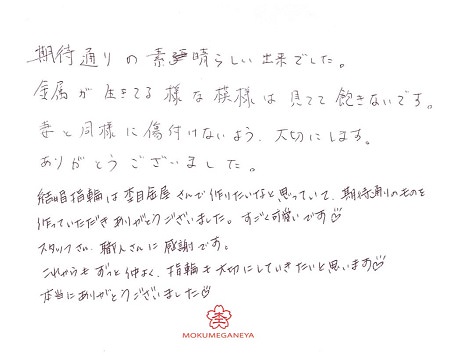 期待通りの素晴らしい出来でした。
金属が生きてる様な模様は見てて飽きないです。
妻と同様に傷付けないよう、大切にします。
ありがとうございました。
結婚指輪は杢目金屋さんで作りたいなと思っていて、期待通りのものを
作っていただきありがとうございました。すごく可愛いです♡
スタッフさん、職人さんに感謝です。
これからもずっと仲よく、指輪も大切にしていきたいと思います♡
本当にありがとうございました♡
杢
MOKUMEGANEYA